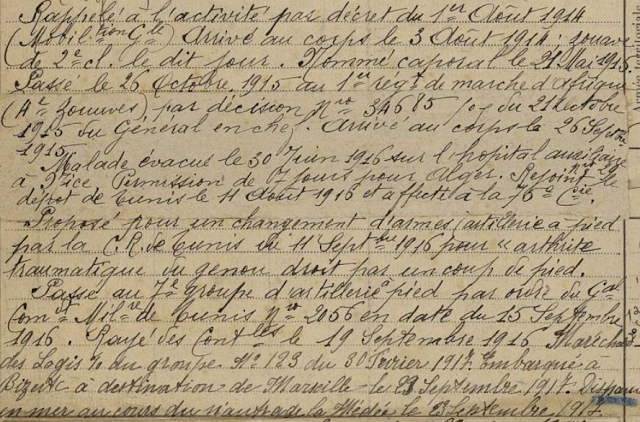 Rappelé à l'activité par décret du 1er Août 1914
(Mobiltion Gle) Arrivé au corps le 3 Août 1914 : zouave
de 2e cl. le dit jour. Nommé caporal le 21 Mai 1915.
Passé le 26 Octobre 1915 au 1er régt de marche d'Afrique
(4e Zouaves) par décision Nro 34685 du 21 Octobre
1915 du Général en chef. Arrivé au corps le 26 Septbre
1915.
Malade évacué le 30 Juin 1916 sur l'hopital auxiliaire
à Nice. Permission de 7 jours pour Alger. Rejoint le
dépôt de Tunis le 11 Août 1916 et affecté à la 76e Cie.
Proposé pour un changement d'armes (artillerie à pied
par la C.R. de Tunis du 11 Septbre 1916 pour "arthrite
traumatique du genou droit par un coup de pied.
Passé au 7e groupe d'artillerie à pied par ordre du Gal
Comt Milre de Tunis Nro 2056 en date du 15 Septembre
1916. Rayé des Contles le 19 Septembre 1916 Maréchal
des Logis du groupe No 123 du 30 Février 1917. Embarqué à
Bizerte à destination de Marseille le 23 Septembre 1917. Disparu
en mer au cours du naufrage de la Médie le 23 Septembre 1917.